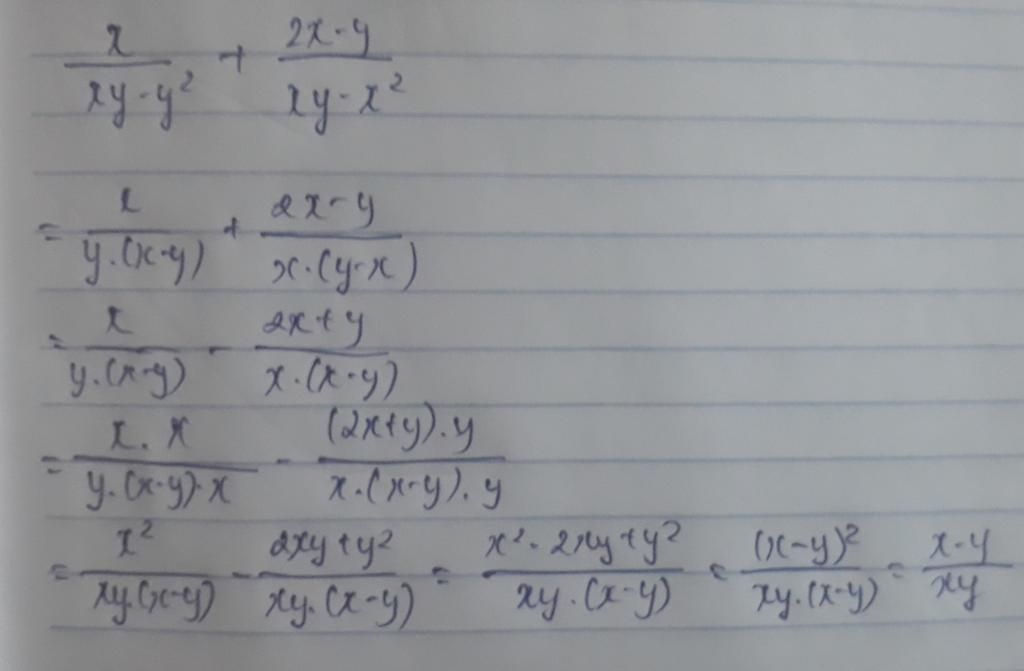 x/(xy-y²) + (2x-y)/(xy-x²)
= x/(y.(x-y)) + (2x-y)/(x.(y-x))
= x/(y.(x-y)) - (2x+y)/(x.(x-y))
= (x.x)/(y.(x-y).x) - ((2x+y).y)/(x.(x-y).y)
= x²/(xy.(x-y)) - (2xy+y²)/(xy.(x-y)) = (x²-2xy+y²)/(xy.(x-y)) = (x-y)²/(xy.(x-y)) = (x-y)/(xy)